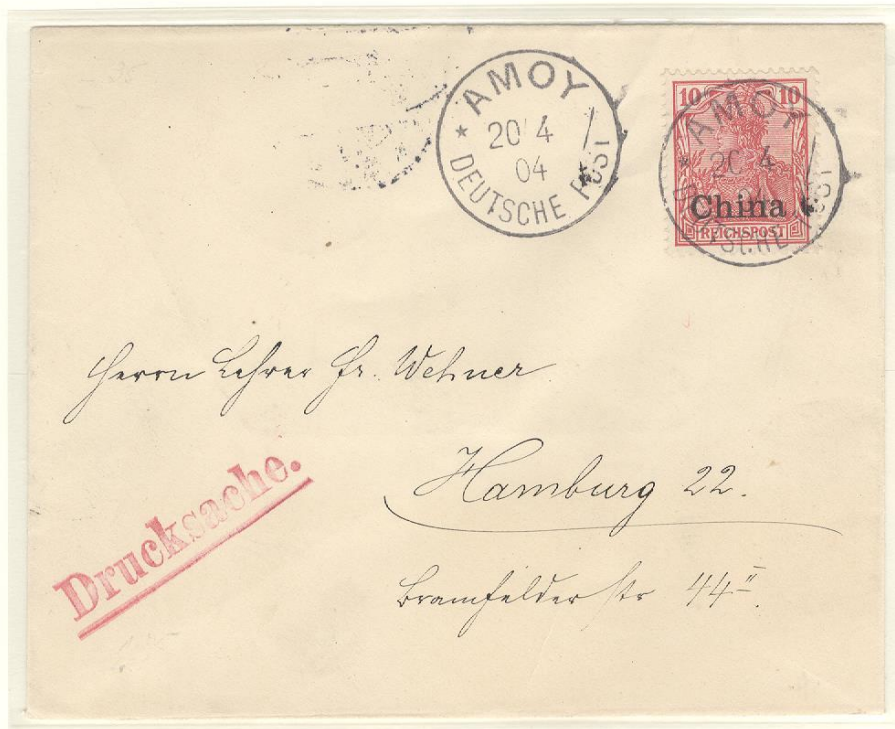 AMOY
20 4
04
DEUTSCHE POST
10 10
AMOY
20 4
04
DEUTSCHE POST
China
REICHSPOST
Herrn Lehrer Fr. Wehner
Hamburg 22.
Bramfelderstr 44 II.
Drucksache.